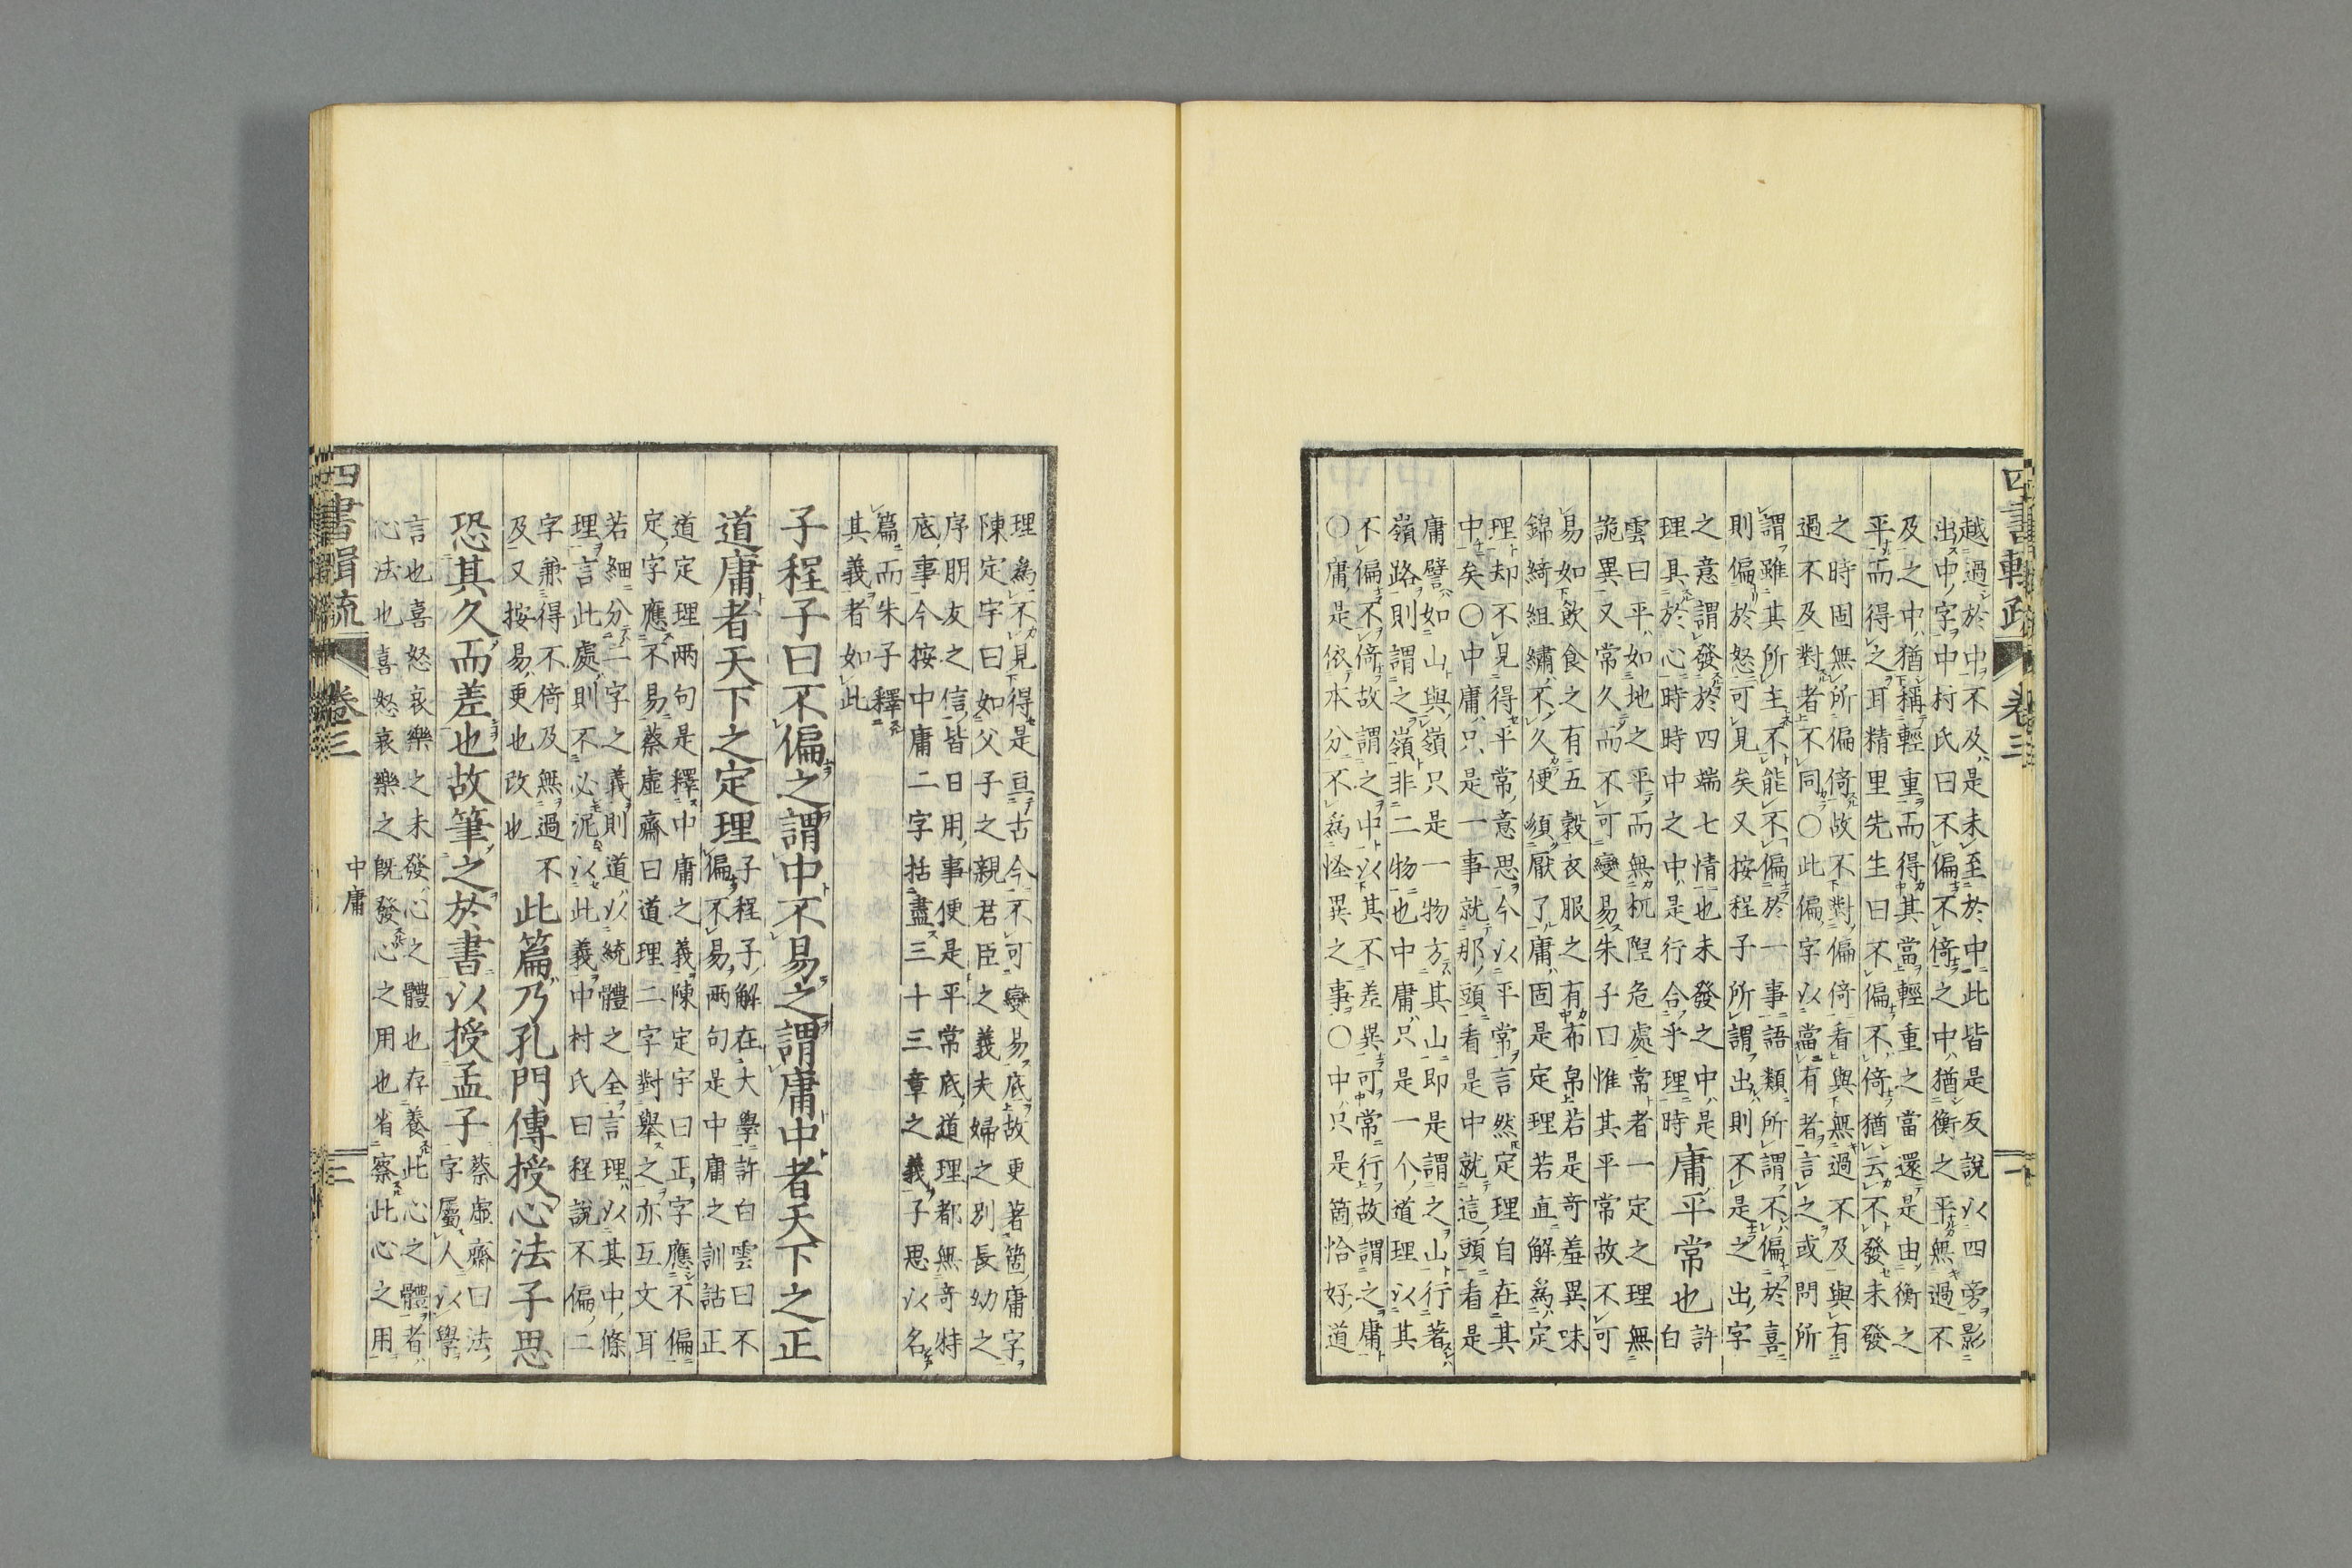 四書輯疏 卷三 一
越過於中不及是未至於中此皆是反說以四旁影
出中字中柯氏曰不偏不倚之中猶衡之平無過不
及之中猶稱輕重而得其當輕重之當還是由衡之
平而得之耳精里先生曰不偏不倚猶云不發未發
之時固無所偏倚故不對偏倚看與無過不及與有
過不及對者不同〇此偏字以當有者言之或問所
謂雖其所主不能不偏於一事語類所謂不偏於喜
則偏於怒可見矣又按程子所謂出則不是之出字
之意謂發於四端七情也未發之中是
理具於心時時中之中是行合乎理時
庸平常也
許
白
雲曰平如地之平而無杌隉危處常者一定之理無
詭異又常久而不可變易朱子曰惟其平常故不可
易如飲食之有五穀衣服之有布帛若是奇羞異味
錦綺組繡不久便須厭了庸固是定理若直解爲定
理却不見得平常意思今以平常言然定理自在其
中矣〇中庸只是一事就那頭看是中就這頭看是
庸譬如山與嶺只是一物方其山即是謂之山行著
嶺路則謂之嶺非二物也中庸只是一个道理以其
不偏不倚故謂之中以其不差異可常行故謂之庸
〇庸是依本分不爲怪異之事〇中只是箇恰好道
理爲不見得是亘古今不可變易底故更著箇庸字
陳定宇曰如父子之親君臣之義夫婦之別長幼之
序朋友之信皆日用事便是平常底道理都無奇特
底事今按中庸二字括盡三十三章之義子思以名
篇而朱子釋
其義者如此
子程子曰不偏之謂中不易之謂庸中者天下之正
道庸者天下之定理
子程子解在大學許白雲曰不
偏不易兩句是中庸之訓詁正
道定理兩句是釋中庸之義陳定宇曰正字應不偏
定字應不易蔡虛齋曰道理二字對舉之亦互文耳
若細分二字之義則道以統體之全言理以其中條
理言此處則不必泥以此義中村氏曰程說不偏二
字兼得不倚及無過不
及又按易更也改也
此篇乃孔門傳授心法子思
恐其久而差也故筆之於書以授孟子
蔡虛齋曰法
字屬人以學
言也喜怒哀樂之未發心之體也存養此心之體者
心法也喜怒哀樂之既發心之用也省察此心之用
四書輯疏 卷三 中庸 二